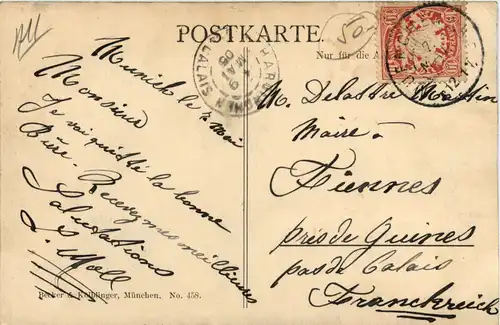 POSTKARTE
Nur für die A
Munich le 7 Mai
Monsieur
Je vais goûter la bonne
Bière. Recevez mes meilleures
Salutations
L. Moll
M. Delastre Martin
Maire à
Fiennes
près de Guines
pas de Calais
Franckreich
Becker & Kölblinger, München. No. 458.